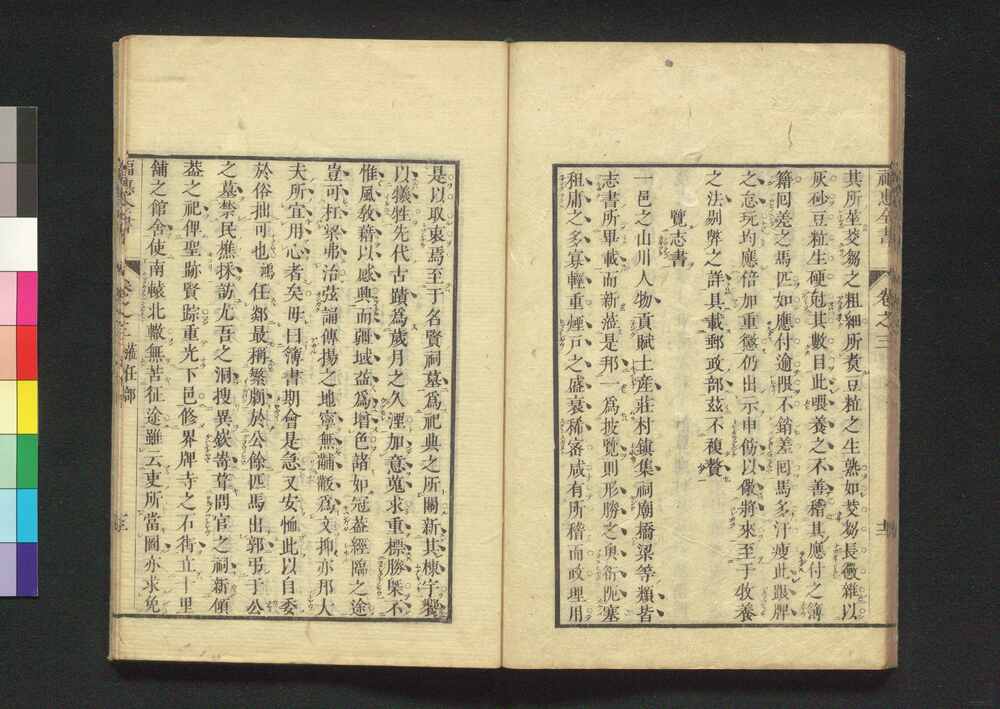 福惠全書
卷之三
其所莝芻之粗細所煑豆粒之生熟如芻長黴雜以
灰砂豆粒生硬尅其數目此喂養之不善稽其應付之簿
籍回差之馬匹如應付逾限不銷差回馬多汗瘦此跟牌
之怠玩均應倍加重懲仍出示申飭以儆將來至于牧養
之法剔弊之詳具載郵政部茲不複贅
覽志書
一邑之山川人物貢賦土産莊村鎮集祠廟橋梁等類皆
志書所畢載而新蒞是邦一爲披覽則形勝之奥衍阨塞
租庸之多寡輕重煙戸之盛衰稀密咸有所稽而政理用
是以取衷焉至于名賢祠墓爲祀典之所關新其棟宇饗
以犧牲先代古蹟爲歲月之久湮加意蒐求重標勝槩不
惟風敎藉以感興而疆域益爲增色諸如冠葢經臨之途
豈可任翠弗治弦誦傳揚之地寧無黼黻爲文抑亦邦大
夫所宜用心者矣毋曰簿書期會是急又安恤此以自委
於俗拙可也鴻任郯最稱繁劇於公餘匹馬出郭弔于公
之墓禁民樵採訪尤吾之洞搜異欽竒葺問官之祠新傾
葢之祀俾聖跡賢踪重光下邑修界牌寺之石街立十里
舖之館舍使南轅北轍無苦征途雖云吏所當圖亦求免
福惠全書
卷之三
蒞任部